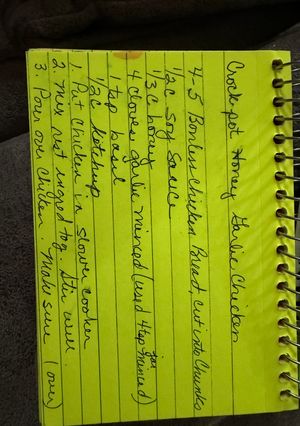 Crockpot Honey Garlic Chicken
4-5 Bonless Chicken Breast, cut into Chunks
1/2 c Soy Sauce
1/3 c honey
4 cloves garlic minced (used 4 tsp jar minced)
1 tsp basil
1/2 c ketchup
1. Put Chicken in slower cooker
2. Mix rest ingred tog. Stir well.
3. Pour over Chicken Make sure (over)